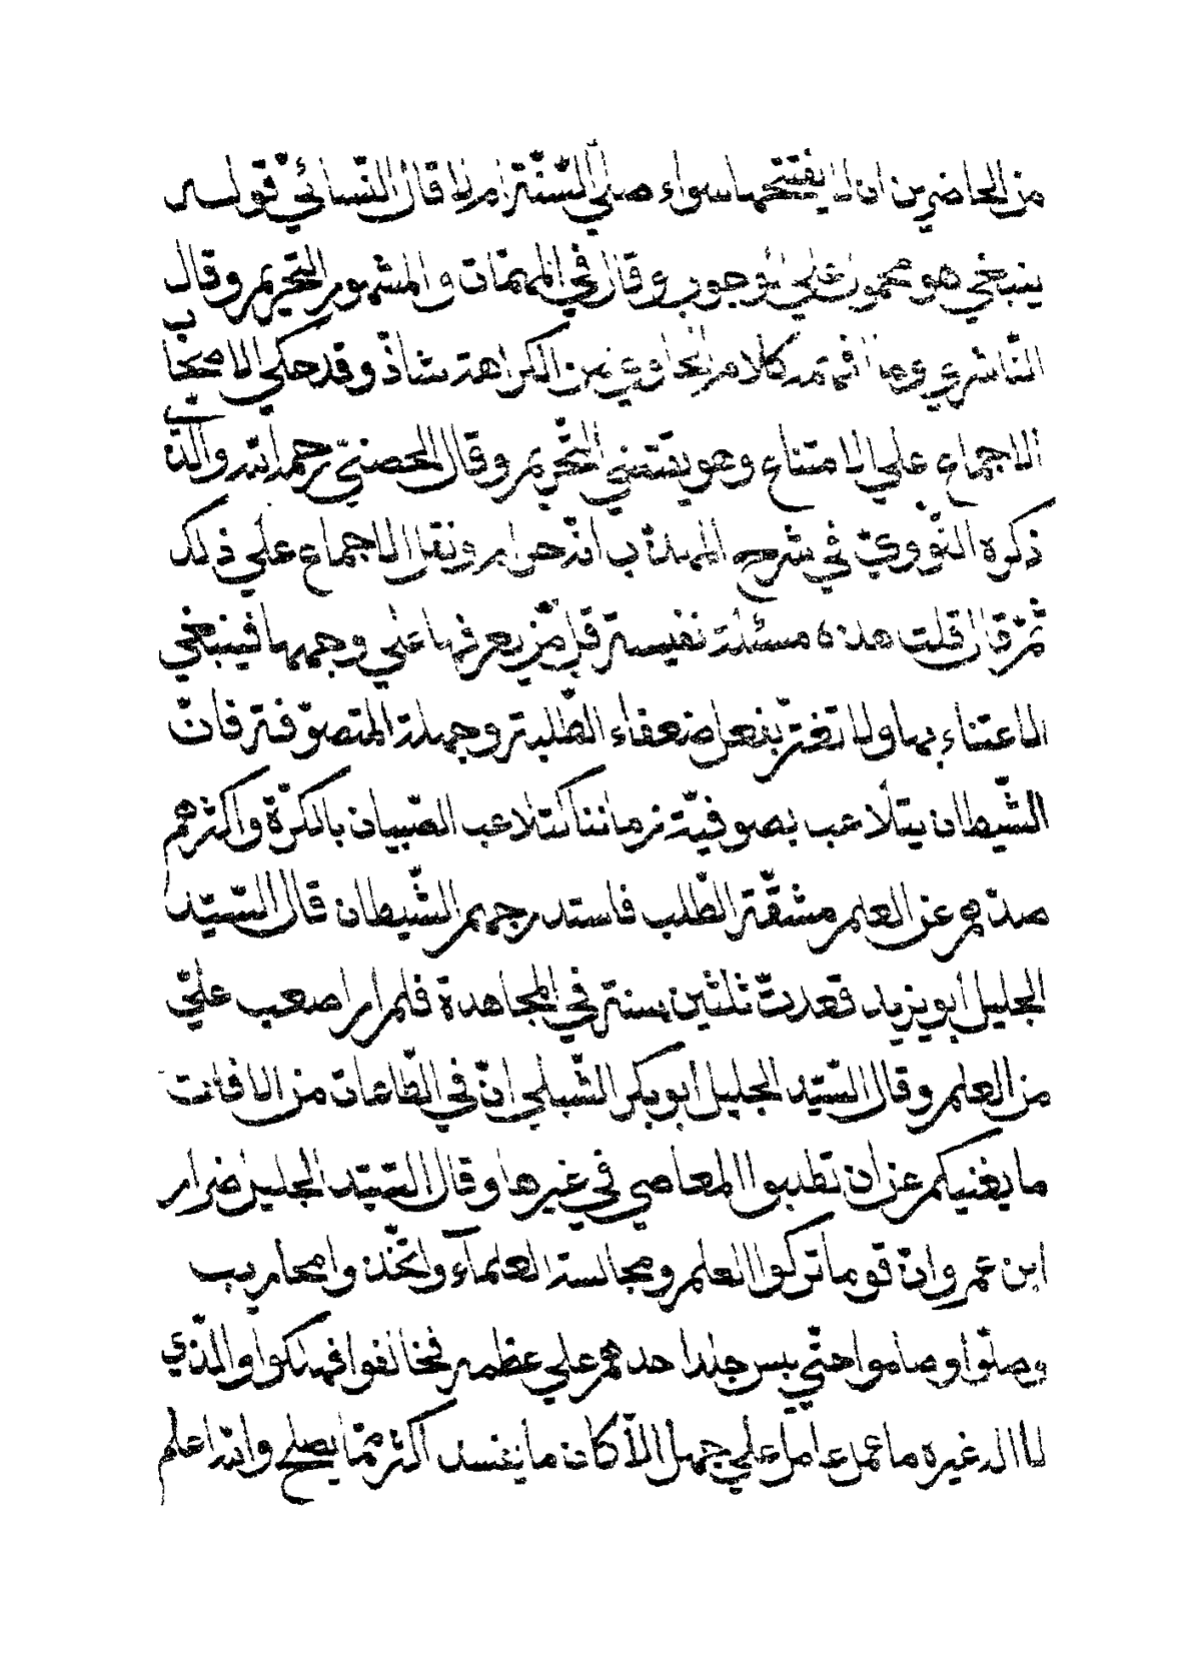 من الحاضرين ان لا يفتتحها سواء صلي السّنّة ام لا قال النّسائيّ قوله
ينبغي هو محمول علي الوجوب وقال في المهمّات والمشهور التّحريم وقال
النّاشري وما افهمه كلام الحاوي من الكراهة شاذّ وقد حكي الاصحاب
الاجماع علي الامتناع وهو يقتضي التّحريم وقال الحصنيّ رحمه الله والّذي
ذكره النّوويّ في شرح المهذّب انّه حرام ونقل الاجماع علي ذلك
ثمّ قال قلت هذه مسئلة نفيسة قلّ من يعرفها علي وجهها فينبغي
الاعتناء بها ولا تغترّ بفعل ضعفاء الطّلبة وجهلة المتصوّفة فانّ
الشّيطان يتلاعب بصوفيّة زماننا كتلاعب الصّبيان بالكرة واكثرهم
صدّهم عن العلم مشقّة الطّلب فاستدرجهم الشّيطان قال السّيّد
الجليل ابو يزيد قعدت ثلثين سنة في المجاهدة فلم ار اصعب عليّ
من العلم وقال السّيّد الجليل ابو بكر الشّبلي انّ في الطّاعات من الافات
ما يغنيكم عن ان تطلبوا المعاصي في غيرها وقال السّيّد الجليل ضرار
ابن عمرو انّ قوما تركوا العلم ومجالسة العلمآء واتّخذوا محاريب
وصلّوا وصاموا حتّي يبس جلد احدهم علي عظمه فخالفوا فهلكوا والّذي
لا اله غيره ما عمل عامل علي جهل الّا كان ما يفسد اكثر ممّا يصلح والله اعلم